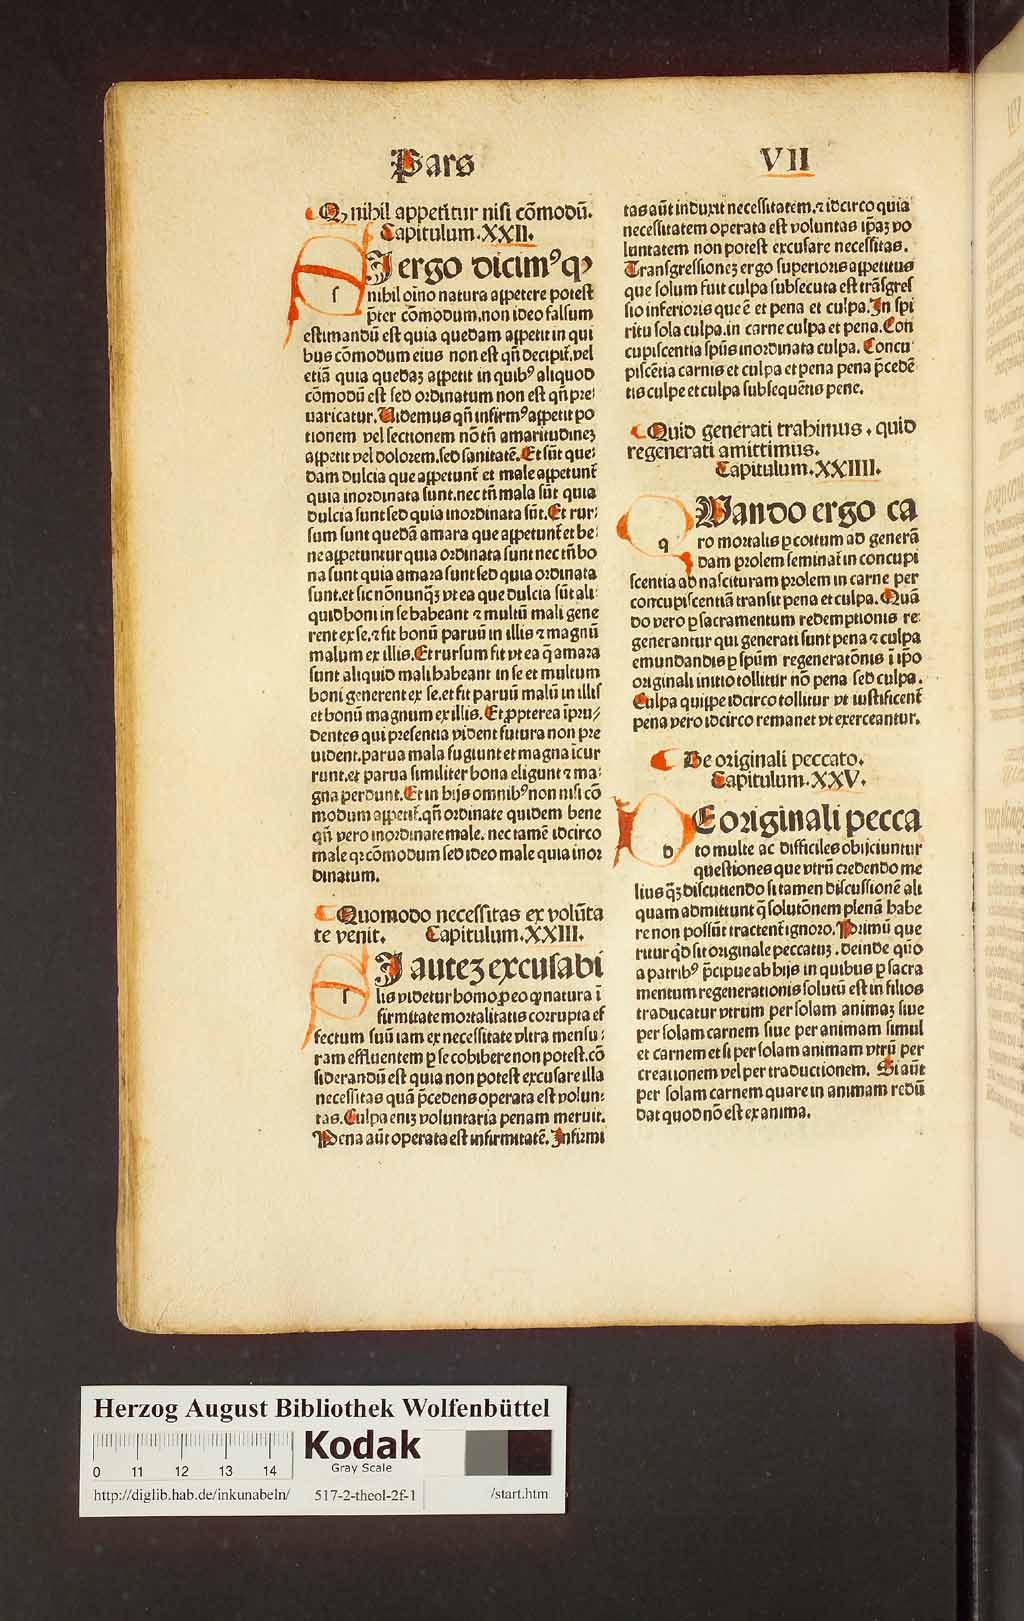 Pars
VII
Qꝙ nihil appetitur nisi cōmodū.
Capitulum.XXII.
SI ergo dicimꝰ qꝙ
s
nihil oīno natura appetere potest
p̄ter cōmodum,non ideo falsum
estimandū est quia quedam appetit in qui
bus cōmodum eius non est qn̄ decipit᷑.vel
etiā quia quedaꝫ appetit in quibꝰ aliquod
cōmodū est sed ordinatum non est qn̄ pre⸗
uaricatur.Uidemus qn̄ infirmꝰ appetit po
tionem vel sectionem nō tn̄ amaritudineꝫ
appetit vel dolorem.sed sanitatē.Et sūt que⸗
dam dulcia que appetunt᷑ et male appetunt᷑
quia inordinata sunt.nec tn̄ mala sūt quia
dulcia sunt sed quia inordinata sūt.Et rur⸗
sum sunt quedā amara que appetunt᷑ et be⸗
ne appetuntur quia ordinata sunt nec tn̄ bo
na sunt quia amara sunt sed quia ordinata
sunt.et sic nōnunqꝫ vt ea que dulcia sūt ali⸗
quid boni in se habeant ⁊ multū mali gene
rent ex se.⁊ fit bonū paruū in illis ⁊ magnū
malum ex illis.Et rursum fit vt ea q̄ amara
sunt aliquid mali habeant in se et multum
boni generent ex se.et fit paruū malū in illis
et bonū magnum ex illis.Et ꝓpterea īpru⸗
dentes qui presentia vident futura non pre
uident.parua mala fugiunt et magna īcur
runt.et parua similiter bona eligunt ⁊ ma⸗
gna perdunt.Et in hijs omnibꝰ non nisi cō
modum appetit᷑.qn̄ ordinate quidem bene
qn̄ vero inordinate male. nec tamē idcirco
male qꝛ cōmodum sed ideo male quia inor
dinatum.
Quomodo necessitas ex volūta
te venit. Capitulum.XXIII.
SI auteꝫ excusabi
s
lis videtur homo ꝓ eo ꝙ natura ī
firmitate mortalitatis corrupta ef
fectum suū iam ex necessitate vltra mensu⸗
ram effluentem ꝑ se cohibere non potest.cō
siderandū est quia non potest excusare illa
necessitas quā p̄cedens operata est volun⸗
tas.Culpa enim voluntaria penam meruit.
Pena aūt operata est infirmitatē. Infirmi
tas aūt induxit necessitatem.⁊ idcirco quia
necessitatem operata est voluntas ip̄aꝫ vo
luntatem non potest excusare necessitas.
Transgressioneꝫ ergo superioris appetitus
que solum fuit culpa subsecuta est trāsgres
sio inferioris que ē et pena et culpa.In spi
ritu sola culpa.in carne culpa et pena.Con
cupiscentia sp̄us inordinata culpa. Concu⸗
piscētia carnis et culpa et pena pena p̄cedē
tis culpe et culpa subsequētis pene.
Quid generati trahimus . quid
regenerati amittimus.
Capitulum.XXIIII.
QUando ergo ca
q
ro mortalis ꝑ coitum ad generā
dam prolem seminat᷑ in concupi
scentia ad nascituram prolem in carne per
concupiscentiā transit pena et culpa.Quā
do vero ꝑ sacramentum redemptionis re⸗
generantur qui generati sunt pena ⁊ culpa
emundandis ꝑ sp̄um regeneratōnis ī ip̄o
originali initio tollitur nō pena sed culpa.
Culpa quippe idcirco tollitur vt iustificent᷑
pena vero idcirco remanet vt exerceantur.
De originali peccato.
Capitulum.XXV.
DE originali pecca
d
to multe ac difficiles obijciuntur
questiones que vtrū credendo me
lius qꝫ discutiendo si tamen discussionē ali
quam admittunt q̄ solutōnem plenā habe
re non possūt tractent᷑ ignoro. Primū que
ritur qd̄ sit originale peccatuꝫ . deinde quō
a patribꝰ p̄cipue ab hijs in quibus ꝑ sacra
mentum regenerationis solutū est in filios
traducatur vtrum per solam animaꝫ siue
per solam carnem siue per animam simul
et carnem et si per solam animam vtrū per
creationem vel per traductionem. Si aūt
per solam carnem quare in animam redū
dat quod nō est ex anima.
Herzog August Bibliothek Wolfenbüttel
0 11 12 13 14
Kodak
Gray Scale
http://diglib.hab.de/inkunabeln/ 517-2-theol-2f-1 /start.htm